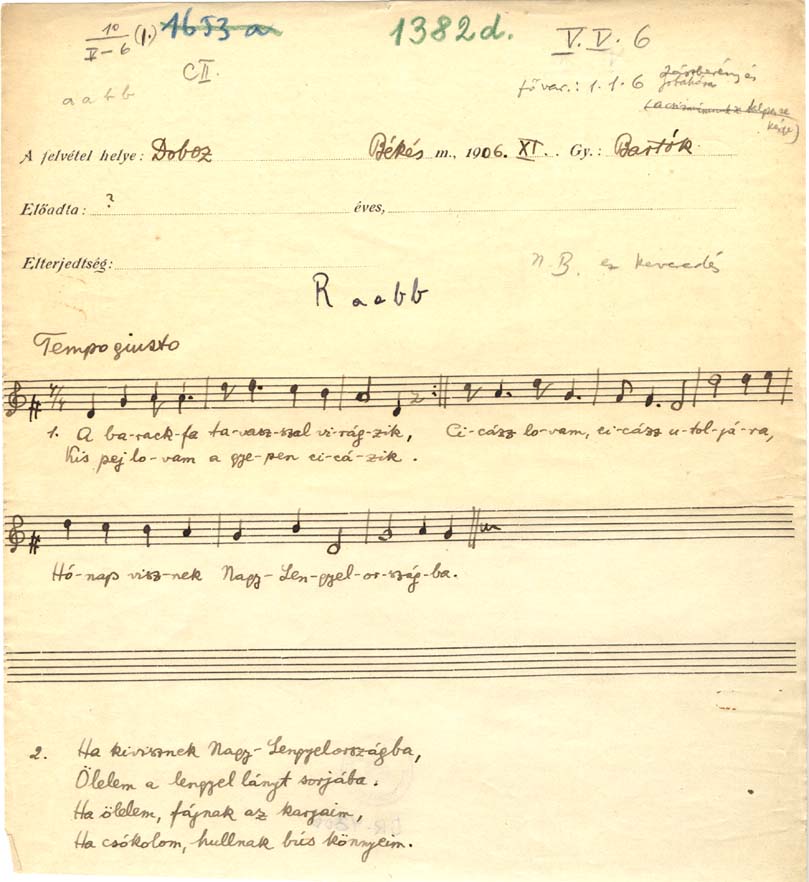 10
V-6 (1.) 1653a 1382d. V. V. 6
CII.
a a b b
fővar.: 1. 1. 6 Jászberény és
A felvétel helye: Doboz Békés m., 1906. XI. Gy.: Bartók
Előadta: ? éves,
Elterjedtség:
N.B. ez keveredés
R a a b b
Tempo giusto
1. A ba-rack-fa ta-vasz-szal vi-rág-zik, Ci-cász lo-vam, ci-cász u-tol-já-ra,
Kis pej lo-vam a gye-pen ci-cá-zik.
Hó-nap visznek Nagy-Len-gyel-or-szág-ba.
2. Ha kivisznek Nagy-Lengyelországba,
Ölelem a lengyel lányt sorjába.
Ha ölelem, fájnak az karjaim,
Ha csókolom, hullnak bús könnyeim.